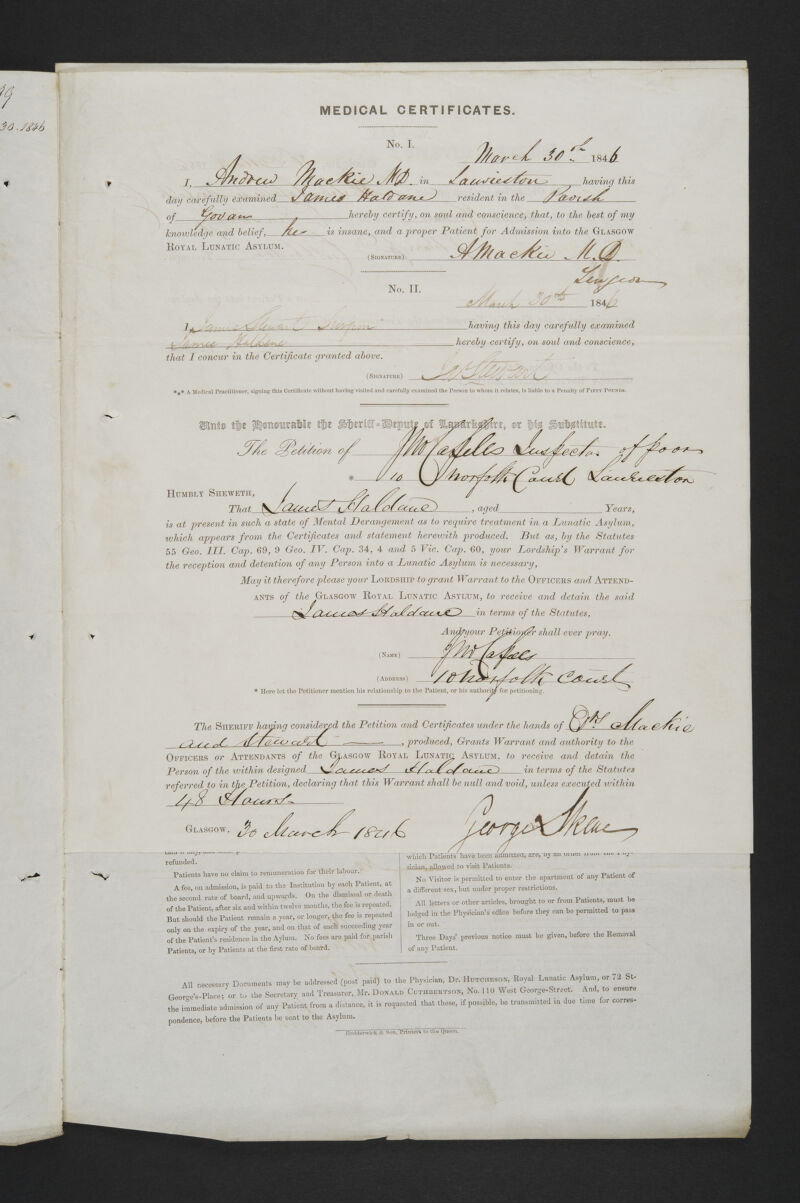 99
30. 1846
MEDICAL CERTIFICATES.
No. I.
March 30th 1846
I, Andrew Mackie M.D. in Laurieston having this
day carefully examined James Haldane resident in the Parish
of Govan hereby certify, on soul and conscience, that, to the best of my
knowledge and belief, he is insane, and a proper Patient for Admission into the GLASGOW
ROYAL LUNATIC ASYLUM.
(SIGNATURE) AMackie M.D.
Surgeon
No. II.
March 30th 1846
I, James Stewart Surgeon having this day carefully examined
James Haldane hereby certify, on soul and conscience,
that I concur in the Certificate granted above.
(SIGNATURE) Jas Stewart
*** A Medical Practitioner, signing this Certificate without having visited and carefully examined the Person to whom it relates, is liable to a Penalty of FIFTY POUNDS.
Unto the Honourable the Sheriff-Depute of Lanarkshire, or his Substitute.
The Petition of Inspector of poor
* 10 Norfolk Court Laurieston
HUMBLY SHEWETH,
That James Haldane, aged Years,
is at present in such a state of Mental Derangement as to require treatment in a Lunatic Asylum,
which appears from the Certificates and statement herewith produced. But as, by the Statutes
55 Geo. III. Cap. 69, 9 Geo. IV. Cap. 34, 4 and 5 Vic. Cap. 60, your Lordship's Warrant for
the reception and detention of any Person into a Lunatic Asylum is necessary,
May it therefore please your LORDSHIP to grant Warrant to the OFFICERS and ATTEND-
ANTS of the GLASGOW ROYAL LUNATIC ASYLUM, to receive and detain the said
James Haldane in terms of the Statutes,
And your Petitioner shall ever pray.
(NAME)
(ADDRESS) 10 Norfolk Court
* Here let the Petitioner mention his relationship to the Patient, or his authority for petitioning.
The SHERIFF having considered the Petition and Certificates under the hands of Drs Mackie
and Steward, produced, Grants Warrant and authority to the
OFFICERS or ATTENDANTS of the GLASGOW ROYAL LUNATIC ASYLUM, to receive and detain the
Person of the within designed James Haldane in terms of the Statutes
referred to in the Petition, declaring that this Warrant shall be null and void, unless executed within
48 Hours.
GLASGOW, 30 March 1846 George Skene
refunded.
Patients have no claim to remuneration for their labour.
A fee, on admission, is paid to the Institution by each Patient, at
the second rate of board, and upwards. On the dismissal or death
of the Patient, after six and within twelve months, the fee is repeated.
But should the Patient remain a year, or longer, the fee is repeated
only on the expiry of the year, and on that of each succeeding year
of the Patient's residence in the Aylum. No fees are paid for parish
Patients, or by Patients at the first rate of board.
which Patients have been admitted, are, by an order from the Phy-
sician, allowed to visit Patients.
No Visitor is permitted to enter the apartment of any Patient of
a different sex, but under proper restrictions.
All letters or other articles, brought to or from Patients, must be
lodged in the Physician's office before they can be permitted to pass
in or out.
Three Days' previous notice must be given, before the Removal
of any Patient.
All necessary Documents may be addressed (post paid) to the Physician, Dr. HUTCHESON, Royal Lunatic Asylum, or 72 St-
George's-Place; or to the Secretary and Treasurer, Mr. DONALD CUTHBERTSON, No. 110 West George-Street. And, to ensure
the immediate admission of any Patient from a distance, it is requested that these, if possible, be transmitted in due time for corres-
pondence, before the Patients be sent to the Asylum.
Hedderwick & Son, Printers to the Queen.